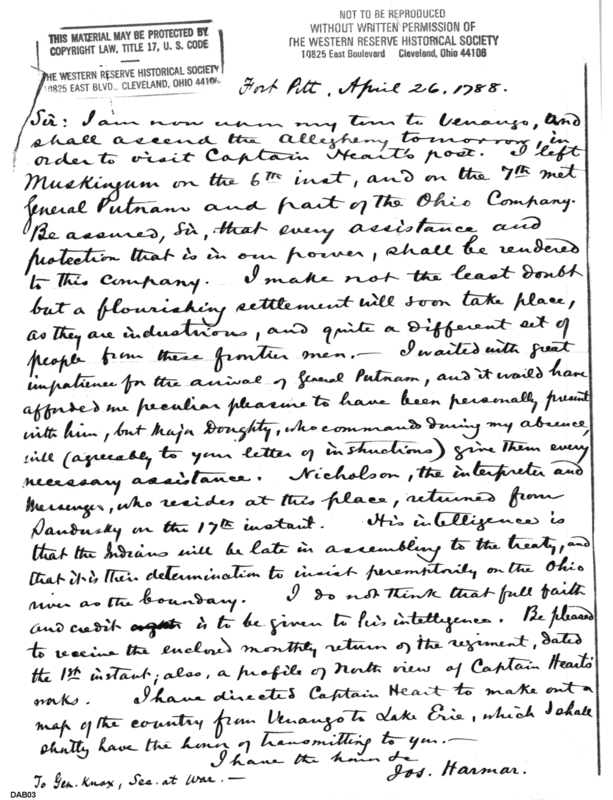 THIS MATERIAL MAY BE PROTECTED BY
COPYRIGHT LAW, TITLE 17, U. S. CODE
THE WESTERN RESERVE HISTORICAL SOCIETY
10825 EAST BLVD., CLEVELAND, OHIO 44106
NOT TO BE REPRODUCED
WITHOUT WRITTEN PERMISSION OF
THE WESTERN RESERVE HISTORICAL SOCIETY
10825 East Boulevard Cleveland, Ohio 44106
Fort Pitt, April 26, 1788.
Sir: I am now upon my tour to Venango, and
shall ascend the Allegheny tomorrow, in
order to visit Captain Heart's post. I left
Muskingum on the 6th inst, and on the 7th met
General Putnam and part of the Ohio Company.
Be assured, Sir, that every assistance and
protection that is in our power, shall be rendered
to this company. I make not the least doubt
but a flourishing settlement will soon take place,
as they are industrious, and quite a different set of
people from these frontier men.— I waited with great
impatience for the arrival of General Putnam, and it would have
afforded me peculiar pleasure to have been personally present
with him, but Major Doughty, who commands during my absence,
will (agreeably to your letter of instructions) give them every
necessary assistance. Nicholson, the interpreter and
Messenger, who resides at this place, returned from
Sandusky on the 17th instant. His intelligence is
that the Indians will be late in assembling to the treaty, and
that it is their determination to insist peremptorily on the Ohio
river as the boundary. I do not think that full faith
and credit is to be given to his intelligence. Be pleased
to receive the enclosed monthly return of the regiment, dated
the 1st instant; also, a profile of North view of Captain Heart's
works. I have directed Captain Heart to make out a
map of the country from Venango to Lake Erie, which I shall
shortly have the honor of transmitting to you.—
I have the honor &c
Jos. Harmar.
To Gen. Knox, Sec. at War.—
DAB03